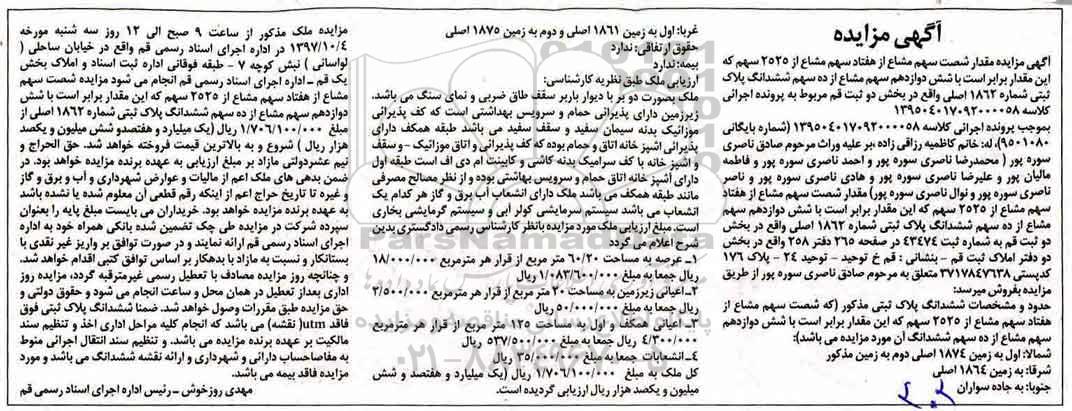 آگهی مزایده
آگهی مزایده مقدار شصت سهم مشاع از هفتاد سهم مشاع از ۲۵۲۵ سهم که
این مقدار برابر است با شش دوازدهم سهم مشاع از ده سهم ششدانگ پلاک
ثبتی شماره ۱۸۶۲ اصلی واقع در بخش دو ثبت قم مربوط به پرونده اجرایی
کلاسه ۱۳۹۵۰۴۰۱۷۰۹۲۰۰۰۰۵۸
بموجب پرونده اجرائی کلاسه ۱۳۹۵۰۴۰۱۷۰۹۲۰۰۰۰۵۸ (شماره بایگانی
۹۵۰۱۰۸۰)، له: خانم کاظمیه رزاقی زاده ؛بر علیه وراث مرحوم صادق نصری
سوره پور ( محمدرضا ناصری سوره پور و احمد ناصری سوره پور و فاطمه
مالیان پور و علیرضا ناصری سوره پور و هادی ناصری سوره پور و ناصر
ناصری سوره پور و نوال ناصری سوره پور) مقدار شصت سهم مشاع از هفتاد
سهم مشاع از ۲۵۲۵ سهم که این مقدار برابر است با شش دوازدهم سهم
مشاع از ده سهم ششدانگ پلاک ثبتی شماره ۱۸۶۲ اصلی واقع در بخش
دو ثبت قم به شماره ثبت ۴۳۴۷۴ در صفحه ۲۶۵ دفتر ۲۵۸ واقع در بخش
دو دفتر املاک ثبت قم - بنشانی : قم خ توحید - توحید ۲۴ - پلاک ۱۷۶
کدپستی ۳۷۱۷۸۴۷۶۳۸ متعلق به مرحوم صادق ناصری سوره پور از طریق
مزایده بفروش میرسد:
حدود و مشخصات ششدانگ پلاک ثبتی مذکور (که شصت سهم مشاع از
هفتاد سهم مشاع از ۲۵۲۵ سهم که این مقدار برابر است با شش دوازدهم
سهم مشاع از ده سهم ششدانگ آن مورد مزایده می باشد):
شمالا: اول به زمین ۱۸۷۴ اصلی دوم به زمین مذکور
شرقا: به زمین ۱۸۶۴ اصلی
جنوبا: به جاده سواران
غربا: اول به زمین ۱۸۶۱ اصلی و دوم به زمین ۱۸۷۵ اصلی
حقوق ارتفاقی: ندارد
بیمه: ندارد
ارزیابی ملک طبق نظریه کارشناسی:
ملک بصورت دو بر با دیوار باربر سقف طاق ضربی و نمای سنگ می باشد.
زیرزمین دارای پذیرایی حمام و سرویس بهداشتی است که کف پذیرائی
موزائیک بدنه سیمان سفید و سقف سفید می باشد طبقه همکف دارای
پذیرائی اشپز خانه اتاق و حمام بوده که کف پذیرائی و اتاق موزائیک - و سقف
و اشپز خانه با کف سرامیک بدنه کاشی و کابینت ام دی اف است طبقه اول
دارای آشپز خانه اتاق حمام و سرویس بهاشتی بوده و از نظر مصالح مصرفی
مانند طبقه همکف می باشد ملک دارای انشعاب آب برق و گاز هر کدام یک
انشعاب می باشد سیستم سرمایشی کولر آبی و سیستم گرمایشی بخاری
است. مبلغ ارزیابی ملک مورد مزایده بانظر کارشناس رسمی دادگستری بدین
شرح اعلام می گردد
۱- عرصه به مساحت ۶۰/۲۰ متر مربع از قرار هر مترمربع ۱۸/۰۰۰/۰۰۰
ریال جمعا به مبلغ ۱/۰۸۳/۶۰۰/۰۰۰ ریال
۲- اعیانی زیرزمین به مساحت ۲۰ متر مربع از قرار هر مترمربع ۲/۵۰۰/۰۰۰
ریال جمعا به مبلغ ۵۰/۰۰۰/۰۰۰ ریال
۳- اعیانی همکف و اول به مساحتی ۱۲۵ متر مربع از قرار هر مترمربع
۴/۳۰۰/۰۰۰ ریال جمعا به مبلغ ۵۳۷/۵۰۰/۰۰۰ ریال
۴- انشعابات جمعا به مبلغ ۳۵/۰۰۰/۰۰۰ ریال
کل ملک به مبلغ ۱/۷۰۶/۱۰۰/۰۰۰ ریال (یک میلیارد و هفتصد و شش
میلیون و یکصد هزار ریال ارزیابی گردیده است.
مزایده ملک مذکور از ساعت ۹ صبح الی ۱۲ روز سه شنبه مورخه
۱۳۹۷/۱۰/۴ در اداره اجرای اسناد رسمی قم واقع در خیابان ساحلی (
لواسانی ) نبش کوچه ۷ - طبقه فوقانی اداره ثبت اسناد و املاک بخش
یک قم - اداره اجرای اسناد رسمی قم انجام می شود مزایده شصت سهم
مشاع از هفتاد سهم مشاع از ۲۵۲۵ سهم که این مقدار برابر است با شش
دوازدهم سهم مشاع از ده سهم ششدانگ پلاک ثبتی شماره ۱۸۶۲ اصلی از
مبلغ ۱/۷۰۶/۱۰۰/۰۰۰ ریال (یک میلیارد و هفتصدو شش میلیون و یکصد
هزار ریال ) شروع و به بالاترین قیمت فروخته خواهد شد. حق الحراج و
نیم عشردولتی مازاد بر مبلغ ارزیابی به عهده برنده مزایده خواهد بود. در
ضمن بدهی های ملک اعم از مالیات و عوارض شهرداری و آب و برق و گاز
و غیره تا تاریخ حراج اعم از اینکه رقم قطعی آن معلوم شده یا نشده باشد
به عهده برنده مزایده خواهد بود. خریداران می بایست مبلغ پایه را بعنوان
سپرده شرکت در مزایده طی چک تضمین شده بانکی همراه خود به اداره
اجرای اسناد رسمی قم ارائه نمایند و در صورت توافق بر واریز غیر نقدی با
بستانکار و نسبت به مازاد با بدهکار بر اساس توافق کتبی اقدام خواهد شد.
و چنانچه روز مزایده مصادف با تعطیل رسمی غیرمترقبه گردد، مزایده روز
اداری بعداز تعطیل در همان محل و ساعت انجام می شود و حقوق دولتی و
حق مزایده طبق مقررات وصول خواهد شد. ضمنا ششدانگ پلاک ثبتی فوق
فاقد utm( نقشه) می باشد که انجام کلیه مراحل اداری اخذ و تنظیم سند
مالکیت بر عهده برنده مزایده می باشد. و تنظیم سند انتقال اجرائی منوط
به مفاصاحساب دارائی و شهرداری و ارائه نقشه ششدانگ می باشد و مورد
مزایده فاقد بیمه می باشد.
مهدی روزخوش - رئیس اداره اجرای اسناد رسمی قم